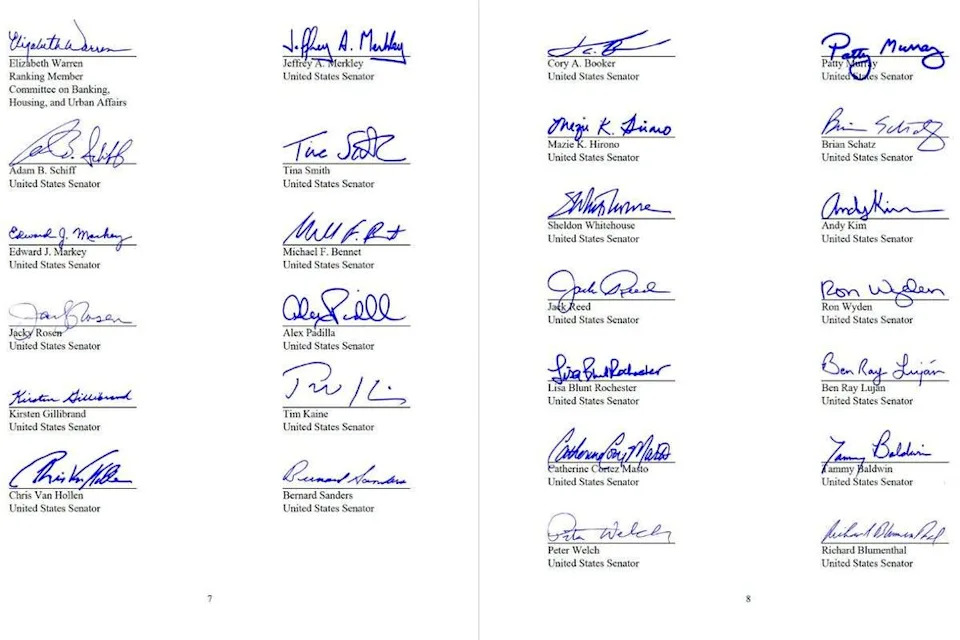 Elizabeth Warren
Elizabeth Warren
Ranking Member
Committee on Banking,
Housing, and Urban Affairs
Jeffrey A. Merkley
Jeffrey A. Merkley
United States Senator
Adam B. Schiff
Adam B. Schiff
United States Senator
Tina Smith
Tina Smith
United States Senator
Edward J. Markey
Edward J. Markey
United States Senator
Michael F. Bennet
United States Senator
Jacky Rosen
Jacky Rosen
United States Senator
Alex Padilla
Alex Padilla
United States Senator
Kirsten Gillibrand
Kirsten Gillibrand
United States Senator
Tim Kaine
United States Senator
Chris Van Hollen
Chris Van Hollen
United States Senator
Bernard Sanders
Bernard Sanders
United States Senator
7
Cory A. Booker
United States Senator
Patty Murray
Patty Murray
United States Senator
Mazie K. Hirono
Mazie K. Hirono
United States Senator
Brian Schatz
Brian Schatz
United States Senator
Sheldon Whitehouse
United States Senator
Andy Kim
Andy Kim
United States Senator
Jack Reed
Jack Reed
United States Senator
Ron Wyden
Ron Wyden
United States Senator
Lisa Blunt Rochester
Lisa Blunt Rochester
United States Senator
Ben Ray Luján
Ben Ray Luján
United States Senator
Catherine Cortez Masto
Catherine Cortez Masto
United States Senator
Tammy Baldwin
Tammy Baldwin
United States Senator
Peter Welch
Peter Welch
United States Senator
Richard Blumenthal
Richard Blumenthal
United States Senator
8